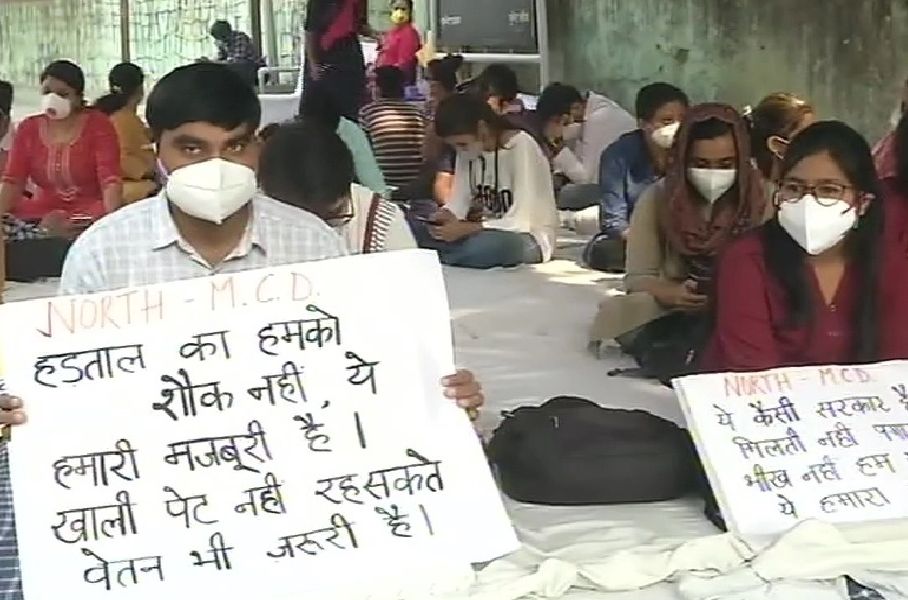 NORTH - M.C.D.
हडताल का हमको
शौक नहीं, ये
हमारी मजबूरी है ।
खाली पेट नही रहसकते
वेतन भी ज़रूरी है ।
NORTH - M.C.D.
ये कैसी सरकार है
मिलती नही
भीख नहीं हम
ये हमारा